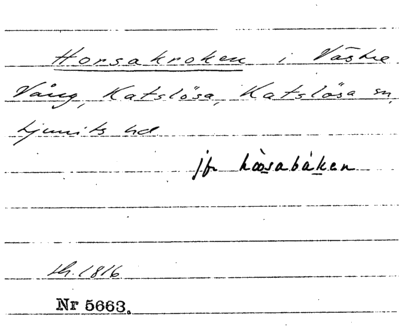 Horsakroken i Västre
Vång, Katslösa, Katslösa sn,
Ljunits hd
jfr håsabaken
sk. 1816
Nr 5663.